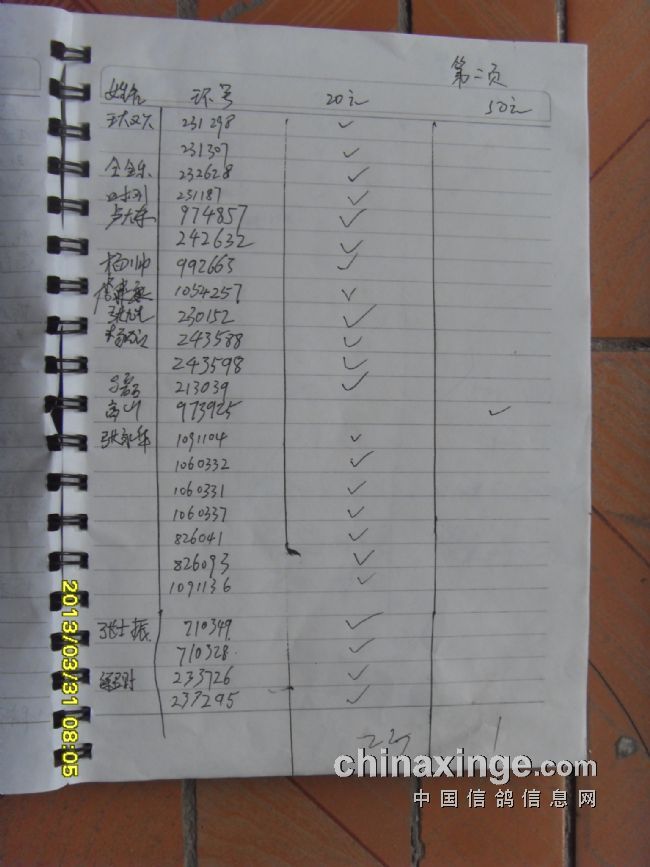 第二页
姓名 环号 20元 50元
231298 ✓
231307 ✓
仝金乐 232628 ✓
231187 ✓
卢大东 974857 ✓
242632 ✓
杨帅 992663 ✓
1054257 ✓
230152 ✓
243588 ✓
243598 ✓
213039 ✓
高山 973925 ✓
1091104 ✓
1060332 ✓
1060331 ✓
1060337 ✓
826041 ✓
826093 ✓
1091136 ✓
张士振 710349 ✓
710328 ✓
233726 ✓
237295 ✓
23 1
2013/03/31 08:05
chinaxinge.com
中国信鸽信息网